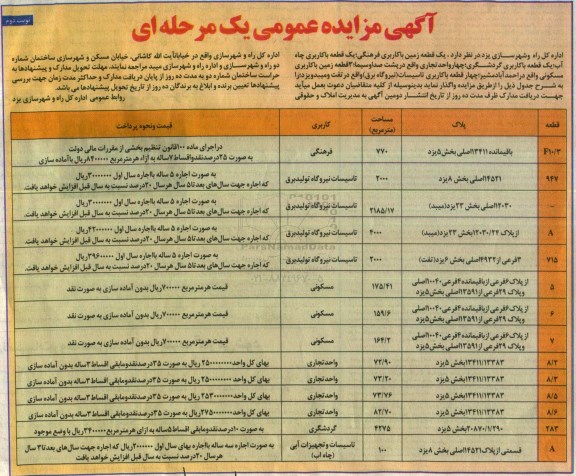 نوبت دوم
آگهی مزایده عمومی یک مرحله ای
اداره کل راه و شهرسازی یزد در نظر دارد، یک قطعه زمین باکاربری فرهنگی؛یک قطعه باکاربری چاه
آب؛یک قطعه باکاربری گردشگری؛چهار واحد تجاری واقع در پشت صداوسیما؛۳قطعه زمین باکاربری
مسکونی واقع در احمدآباد مشیر؛چهار قطعه باکاربری تاسیسات(نیروگاه برق)واقع در تفت ومیبدویزد را
به شرح جدول ذیل را ازطریق مزایده واگذار نماید بدینوسیله از کلیه متقاضیان دعوت بعمل میآید
جهت دریافت مدارک ظرف مدت ده روز از تاریخ انتشار دومین آگهی به مدیریت املاک و حقوقی
اداره کل راه و شهرسازی واقع در خیابان آیت الله کاشانی، خیابان مسکن و شهرسازی ساختمان شماره
دو راه و شهرسازی و اداره راه و شهرسازی میبد مراجعه نمایند. مهلت تحویل مدارک و پیشنهادها به
حراست ساختمان شماره دو به مدت ده روز از پایان دریافت مدارک و حداکثر مدت زمان جهت بررسی
پیشنهادها تعیین برنده و ابلاغ به برندگان ده روز از تاریخ تحویل پیشنهادها می باشد.
روابط عمومی اداره کل راه و شهرسازی یزد
قطعه پلاک مساحت (مترمربع) کاربری قیمت ونحوه پرداخت
F۱۰/۳ باقیمانده۱۳۴۱۱اصلی بخش۵یزد ۷۷۰ فرهنگی دراجرای ماده ۱۰۰قانون تنظیم بخشی از مقررات مالی دولت
به صورت ۲۵درصدنقدواقساط۷ساله به ازاء هرمترمربع ۸۴۰۰۰۰۰ریال باآماده سازی
۹۴۷ ۱۴۵۲۱اصلی بخش ۸یزد ۲۰۰۰ تاسیسات نیروگاه تولیدبرق به صورت اجاره ۵ ساله بااجاره سال اول ریال
که اجاره جهت سال های بعدتا۵ سال هرسال ۲۰درصد نسبت به سال قبل افزایش خواهد یافت.
۱۲۰۳۰اصلی بخش ۲۳یزد(میبد) ۲۱۸۵/۱۷ تاسیسات نیروگاه تولیدبرق به صورت اجاره ۵ ساله بااجاره سال اول ریال
که اجاره جهت سال های بعدتا۵ سال هرسال ۲۰درصد نسبت به سال قبل افزایش خواهد یافت.
۸ ازپلاک ۱۲۰۳۰/۲۲بخش ۲۳یزد(میبد) ۴۰۰۰ تاسیسات نیروگاه تولیدبرق به صورت اجاره ۵ ساله بااجاره سال اول ریال
که اجاره جهت سال های بعدتا۵ سال هرسال ۲۰درصد نسبت به سال قبل افزایش خواهد یافت.
۷۱۵ ۳فرعی از۴۹۳۲اصلی بخش ۶یزد(تفت) ۲۰۰۰ تاسیسات نیروگاه تولیدبرق به صورت اجاره ۵ ساله بااجاره سال اول ریال
که اجاره جهت سال های بعدتا۵ سال هرسال ۲۰درصد نسبت به سال قبل افزایش خواهد یافت.
۵ از پلاک۶فرعی ازباقیمانده۴فرعی۱۰۰۴۰اصلی
وپلاک ۲۹فرعی از۱۳۵۹۱اصلی بخش۵یزد ۱۷۵/۴۱ مسکونی قیمت هرمترمربع ۷۰۰۰۰۰۰ریال بدون آماده سازی به صورت نقد
۶ از پلاک۶فرعی ازباقیمانده۴فرعی۱۰۰۴۰اصلی
وپلاک ۲۹فرعی از۱۳۵۹۱اصلی بخش۵یزد ۱۵۹/۶ مسکونی قیمت هرمترمربع ۷۰۰۰۰۰۰ریال بدون آماده سازی به صورت نقد
۷ از پلاک۶فرعی ازباقیمانده۴فرعی۱۰۰۴۰اصلی
وپلاک ۲۹فرعی از۱۳۵۹۱اصلی بخش۵یزد ۱۶۴/۲ مسکونی قیمت هرمترمربع ۷۰۰۰۰۰۰ریال بدون آماده سازی به صورت نقد
۸/۲ ۱۳۴۱۱/۱۳۳۸۳بخش ۵یزد ۷۲/۹۰ واحدتجاری بهای کل واحد ریال به صورت ۲۵درصدنقدومابقی اقساط ۳ساله بدون آماده سازی
۸/۳ ۱۳۴۱۱/۱۳۳۸۳بخش ۵یزد ۷۳/۲۰ واحدتجاری بهای کل واحد ریال به صورت ۲۵درصدنقدومابقی اقساط ۳ساله بدون آماده سازی
۸/۵ ۱۳۴۱۱/۱۳۳۸۳بخش ۵یزد ۷۳/۷۶ واحدتجاری بهای کل واحد ریال به صورت ۲۵درصدنقدومابقی اقساط ۳ساله بدون آماده سازی
۸/۶ ۱۳۴۱۱/۱۳۳۸۳بخش ۵یزد ۸۲/۷۰ واحدتجاری بهای کل واحد ریال به صورت ۲۵درصدنقدومابقی اقساط ۳ساله بدون آماده سازی
۲۸۳ ۲۰۸۷۰/۱/۲۹۰بخش ۵یزد ۴۳۷۵ گردشگری به صورت ۱۰درصدنقدومابقی اقساط ۵ساله به ازای هرمترمربع ریال با وضع موجود
۸ قسمتی از پلاک ۱۴۵۲۱اصلی بخش ۸یزد ۱۰۰ تاسیسات و تجهیزات آبی
(چاه آب) به صورت اجاره سه ساله بااجاره بهای سال اول ۲۰۰۰۰۰۰ریال که اجاره جهت سال های بعدتا۳ سال
هرسال ۲۰درصد نسبت به سال قبل افزایش خواهد یافت